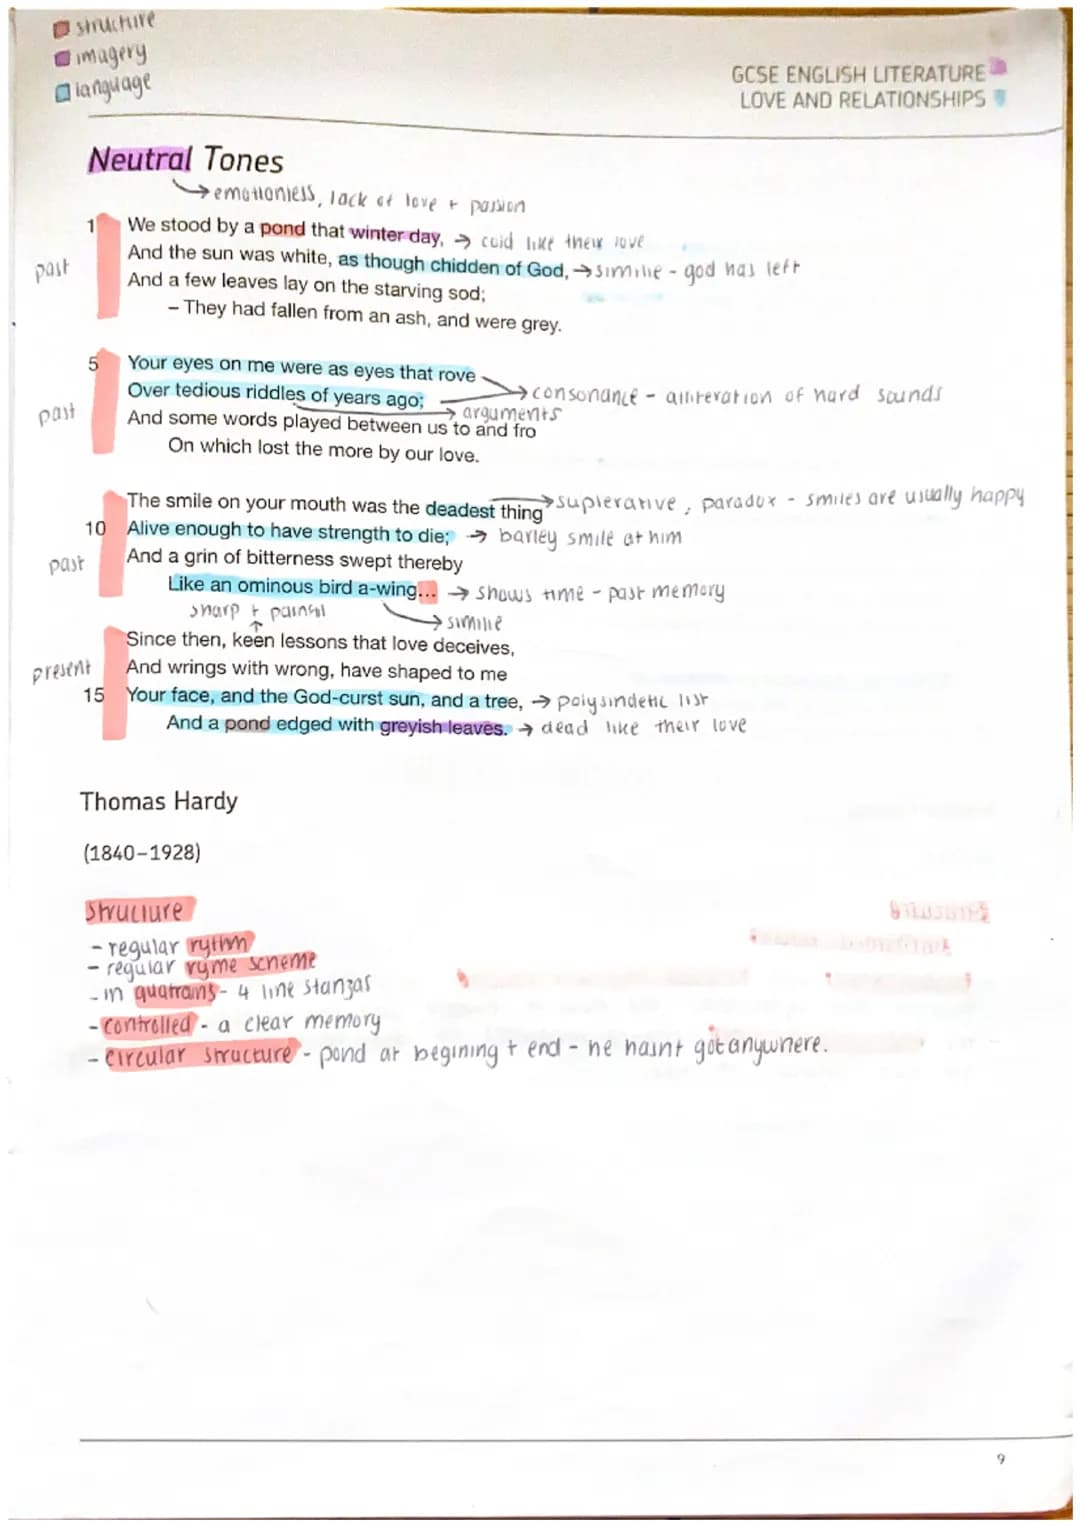 structure
imagery
language
GCSE ENGLISH LITERATURE
LOVE AND RELATIONSHIPS
Neutral Tones
→ emotionless, lack of love + passion
1 We stood by a pond that winter day, → cold like their love
past And the sun was white, as though chidden of God, → similie - god has left
And a few leaves lay on the starving sod;
– They had fallen from an ash, and were grey.
5 Your eyes on me were as eyes that rove
Over tedious riddles of years ago; → consonance - alliteration of hard sounds
past → arguments
And some words played between us to and fro
On which lost the more by our love.
The smile on your mouth was the deadest thing → suplerative, paradox - smiles are usually happy
10 Alive enough to have strength to die; → barley smile at him
past And a grin of bitterness swept thereby
Like an ominous bird a-wing... → shows time - past memory
sharp + painful → similie
Since then, keen lessons that love deceives,
present And wrings with wrong, have shaped to me
15 Your face, and the God-curst sun, and a tree, → polysindetic list
And a pond edged with greyish leaves. → dead like their love
Thomas Hardy
(1840–1928)
structure
- regular rythm
- regular ryme scheme
- in quatrains - 4 line stanzas
- controlled - a clear memory
- circular structure - pond at begining + end - he hasnt got anywhere.
9